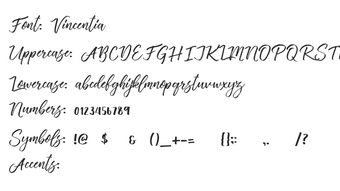 Font: Vincentia
Uppercase: ABCDEFGHIJKLMNOPQRST
Lowercase: abcdefghijklmnopqrstuvwxyz
Numbers: 0123456789
Symbols: !@ $ & ()_+-= {}:; ,. /?
Accents: